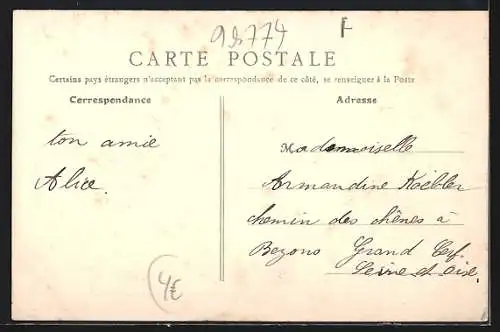 98774 F
CARTE POSTALE
Certains pays étrangers n'acceptant pas la correspondance de ce côté, se renseigner à la Poste
Correspondance
Adresse
ton amie
Alice.
Mademoiselle
Armandine Koebler
chemin des chênes à
Bezons Grand Cerf.
Seine et Oise.
4€